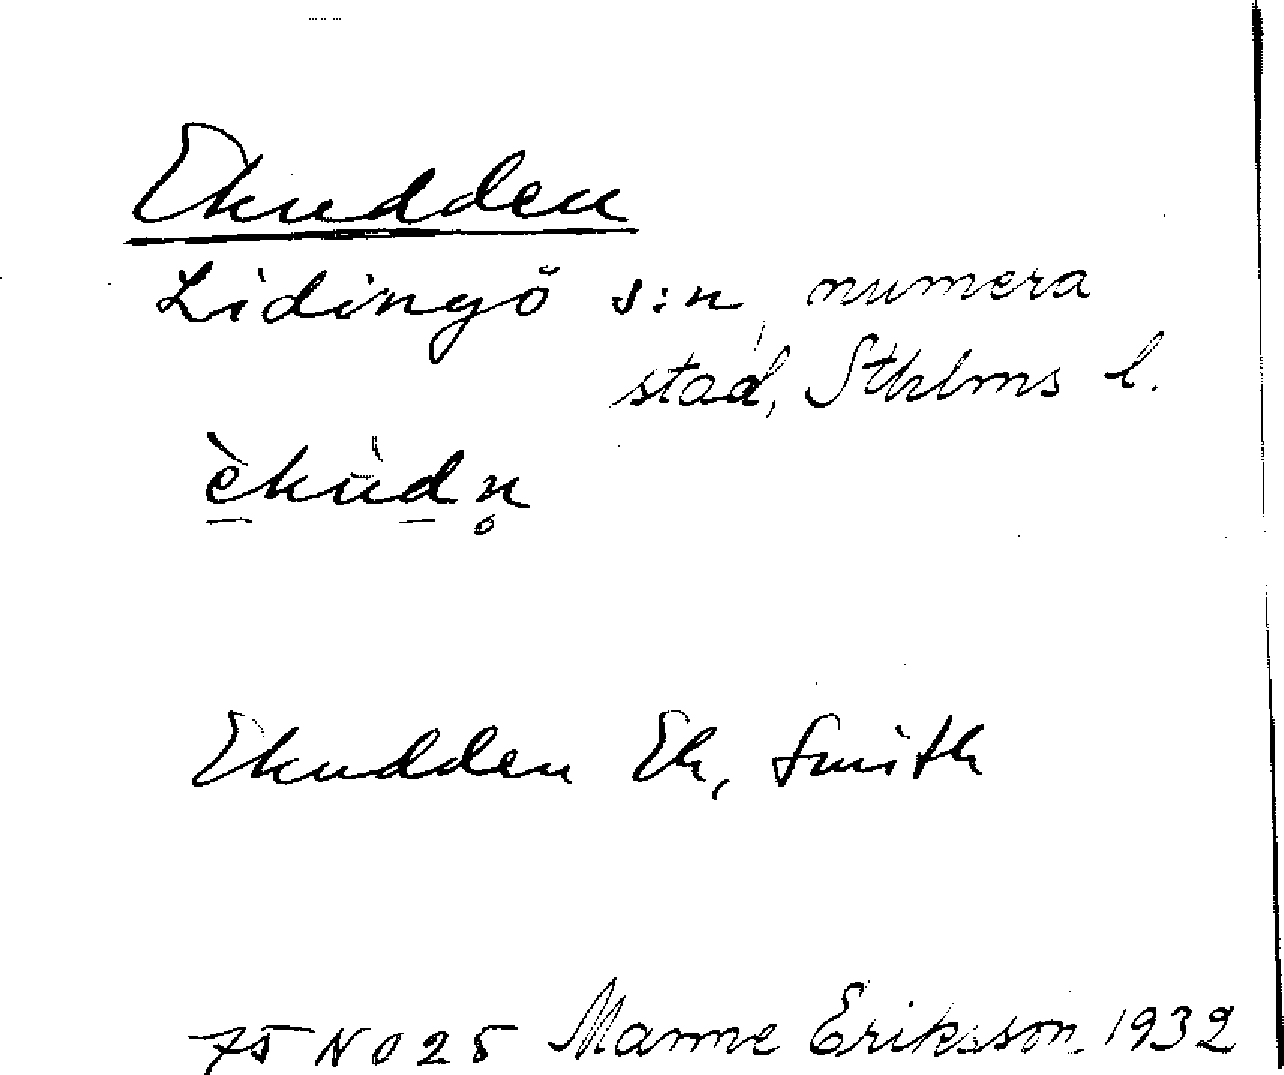 Ekudden
Lidingö s:n, numera
stad, Sthlms l.
èkùdn̥
Ekudden Ek, Smith
75 NO 25 Manne Eriksson 1932